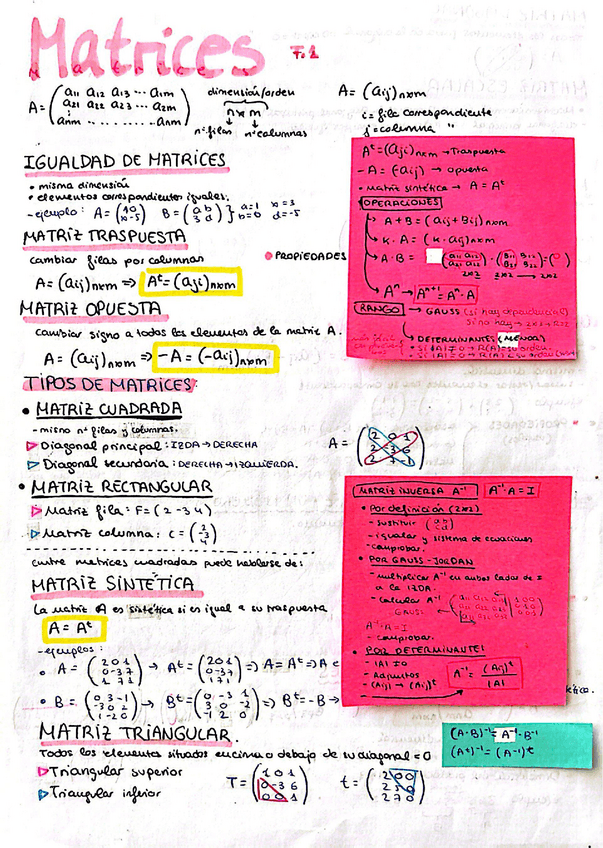 Matrices T.1
A = (a11 a12 a13 ... a1m
a21 a22 a23 ... a2m
anm ........ anm)
dimensión/orden
n x m
nº filas nº columnas
A = (aij)nxm
i = fila correspondiente
j = columna "
IGUALDAD DE MATRICES
• misma dimensión
• elementos correspondientes iguales.
MATRIZ TRASPUESTA
cambiar filas por columnas
A = (aij)nxm ⇒ Aᵗ = (aji)nxm
• PROPIEDADES
MATRIZ OPUESTA
cambiar signo a todos los elementos de la matriz A.
A = (aij)nxm ⇒ -A = (-aij)nxm
TIPOS DE MATRICES:
• MATRIZ CUADRADA
- mismo nº filas y columnas.
▷ Diagonal principal: IZDA → DERECHA
▷ Diagonal secundaria: DERECHA → IZQUIERDA.
• MATRIZ RECTANGULAR
▷ Matriz fila: F = (2 -3 4)
▷ Matriz columna: C = (2
-3
4)
entre matrices cuadradas puede hablarse de:
MATRIZ SINTÉTICA
La matriz A es sintética si es igual a su traspuesta
A = Aᵗ
- ejemplos:
• A = (2 0 1
0 -3 7
1 7 1) → Aᵗ = (2 0 1
0 -3 7
1 7 1) ⇒ A = Aᵗ ⇒ A e
• B = (0 3 -1
-3 0 2
1 -2 0) → Bᵗ = (0 -3 1
3 0 -2
-1 2 0) ⇒ Bᵗ = -B →
MATRIZ TRIANGULAR.
Todos los elementos situados encima o debajo de su diagonal = 0
▷ Triangular superior
▷ Triangular inferior
T = (1 0 1
0 -3 6
0 0 1)
Aᵗ = (aji)nxm → Traspuesta
-A = (-aij) → opuesta
- matriz sintética → A = Aᵗ
OPERACIONES
→ A + B = (aij + Bij)nxm
→ K · A = (K · aij)nxm
→ A · B = (a11 a12
a21 a22) · (B11 B12
B21 B22) = ( )
2x2 2x2 → 2x2
→ Aⁿ → Aⁿ⁺¹ = Aⁿ · A
RANGO → GAUSS (si hay dependencia)
→ DETERMINANTES (MENOR)
MATRIZ INVERSA A⁻¹ A⁻¹·A = I
• Por definición (2x2)
- sustituir (a b
c d)
- igualar y sistema de ecuaciones
- comprobar.
• POR GAUSS-JORDAN
- multiplicar A⁻¹ en ambos lados de I
a la IZDA.
- calcular A⁻¹
GAUSS
A⁻¹·A = I
- comprobar.
• POR DETERMINANTE!
- |A| ≠ 0
- Adjuntos
- (Aij) → (Aij)ᵗ
A⁻¹ = (Aij)ᵗ / |A|
(A·B)⁻¹ = A⁻¹·B⁻¹
(Aᵗ)⁻¹ = (A⁻¹)ᵗ